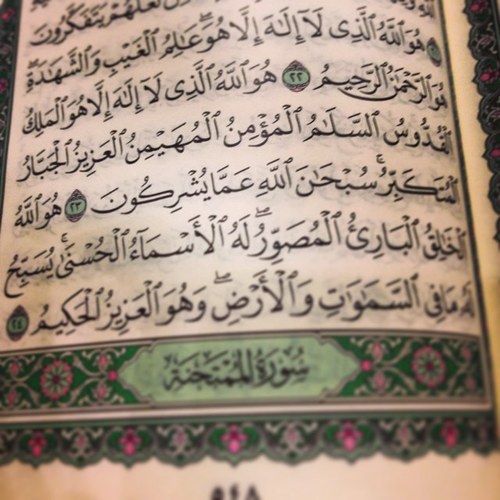 لَعَلَّهُمْ يَتَفَكَّرُونَ
هُوَ ٱللَّهُ ٱلَّذِى لَآ إِلَٰهَ إِلَّا هُوَ ۖ عَٰلِمُ ٱلْغَيْبِ وَٱلشَّهَٰدَةِ ۖ
هُوَ ٱلرَّحْمَٰنُ ٱلرَّحِيمُ ٢٢ هُوَ ٱللَّهُ ٱلَّذِى لَآ إِلَٰهَ إِلَّا هُوَ ٱلْمَلِكُ
ٱلْقُدُّوسُ ٱلسَّلَٰمُ ٱلْمُؤْمِنُ ٱلْمُهَيْمِنُ ٱلْعَزِيزُ ٱلْجَبَّارُ
ٱلْمُتَكَبِّرُ ۚ سُبْحَٰنَ ٱللَّهِ عَمَّا يُشْرِكُونَ ٢٣ هُوَ ٱللَّهُ
ٱلْخَٰلِقُ ٱلْبَارِئُ ٱلْمُصَوِّرُ ۖ لَهُ ٱلْأَسْمَآءُ ٱلْحُسْنَىٰ ۚ يُسَبِّحُ
لَهُۥ مَا فِى ٱلسَّمَٰوَٰتِ وَٱلْأَرْضِ ۖ وَهُوَ ٱلْعَزِيزُ ٱلْحَكِيمُ ٢٤
سُورَةُ المُمْتَحنَةِ